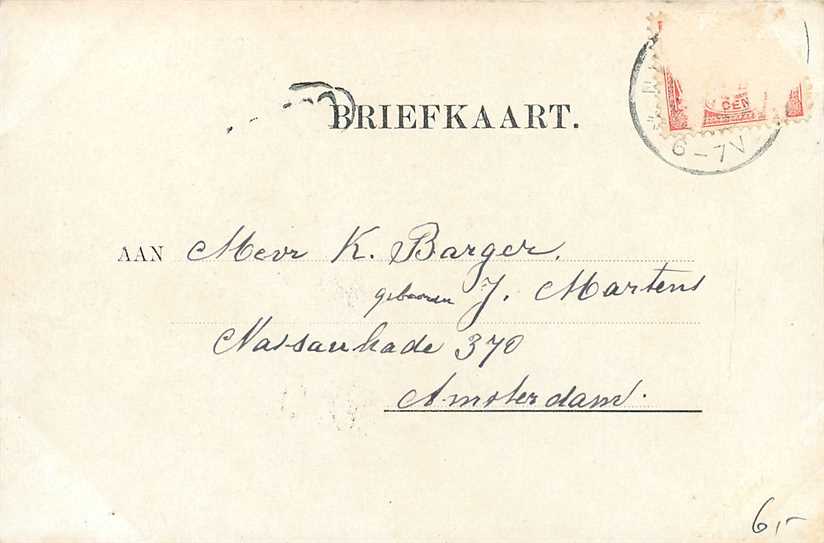 BRIEFKAART.
CEN
6-7V
AAN Mevr K. Barger.
geboren J. Martens
Nassaukade 370
Amsterdam.
6,-